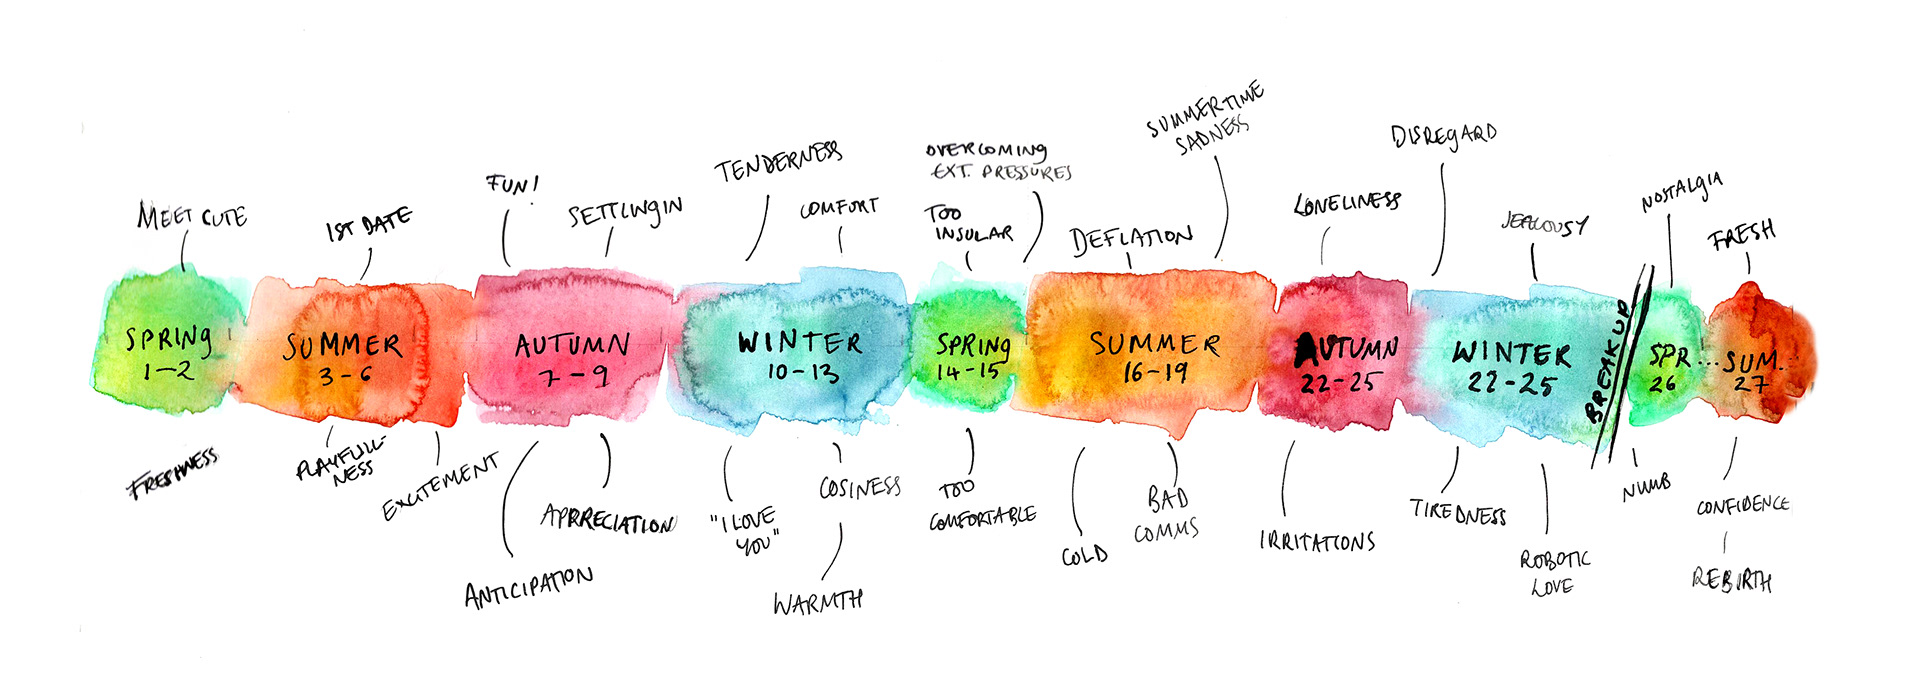 MEET CUTE
SPRING
1-2
FRESHNESS
1ST DATE
SUMMER
3-6
PLAYFULL-
NESS
EXCITEMENT
FUN!
SETTLING IN
AUTUMN
7-9
ANTICIPATION
APPRECIATION
TENDERNESS
COMFORT
WINTER
10-13
"I LOVE
YOU"
COSINESS
WARMTH
OVERCOMING
EXT. PRESSURES
TOO
INSULAR
SPRING
14-15
TOO
COMFORTABLE
DEFLATION
SUMMERTIME
SADNESS
SUMMER
16-19
COLD
BAD
COMMS
LONELINESS
AUTUMN
22-25
IRRITATIONS
DISREGARD
JEALOUSY
WINTER
22-25
TIREDNESS
ROBOTIC
LOVE
BREAKUP
NOSTALGIA
SPR...
26
NUMB
FRESH
SUM.
27
CONFIDENCE
REBIRTH